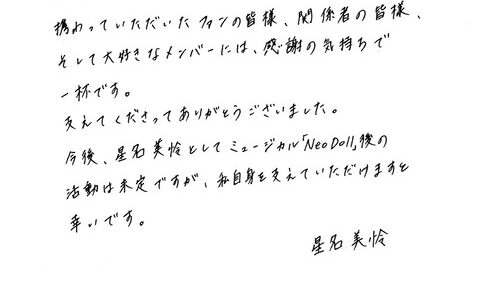 携わっていただいたファンの皆様、関係者の皆様、
そして大好きなメンバーには、感謝の気持ちで
一杯です。
支えてくださってありがとうございました。
今後、星名美怜としてミュージカル「Neo Doll」後の
活動は未定ですが、私自身を支えていただけますと
幸いです。
星名美怜